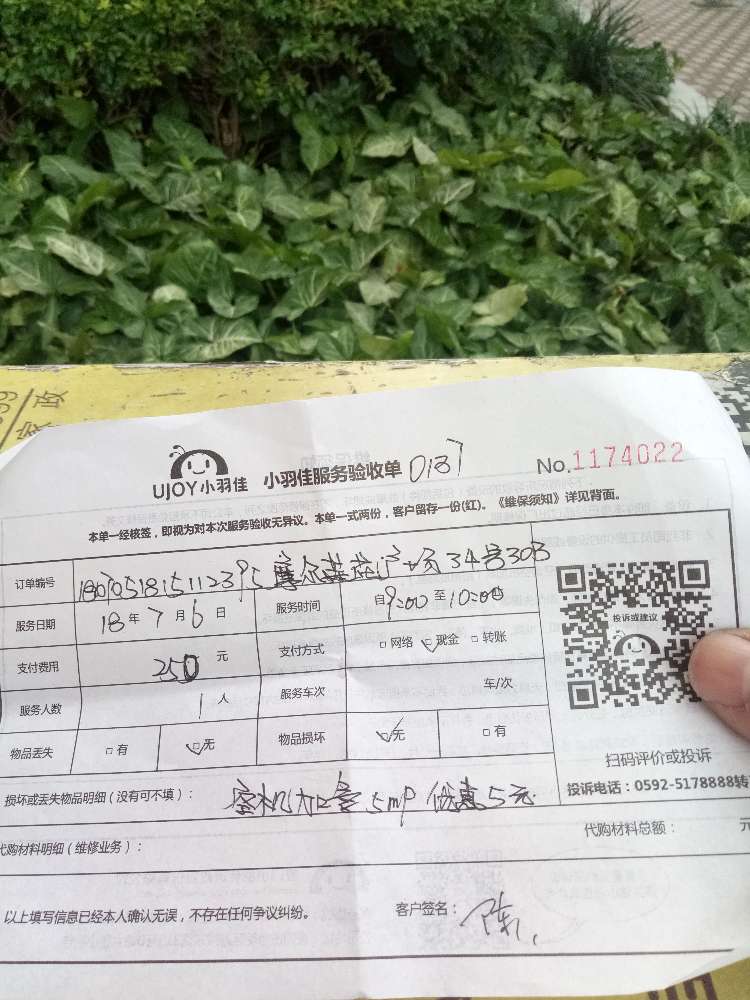 UJOY小羽佳 小羽佳服务验收单 0137 No.1174022
本单一经核签，即视为对本次服务验收无异议。本单一式两份，客户留存一份(红)。《维保须知》详见背面。
订单编号 34号303
服务日期 18年7月6日 服务时间 自9:00至10:00
支付费用 250元 支付方式 □网络 ☑现金 □转账
服务人数 1人 服务车次 车/次
物品丢失 □有 ☑无 物品损坏 ☑无 □有
投诉或建议
扫码评价或投诉
投诉电话：0592-5178888转
损坏或丢失物品明细（没有可不填）： 空机加雪 5mp 优惠5元
代购材料总额： 元
代购材料明细（维修业务）：
以上填写信息已经本人确认无误，不存在任何争议纠纷。 客户签名： 陈